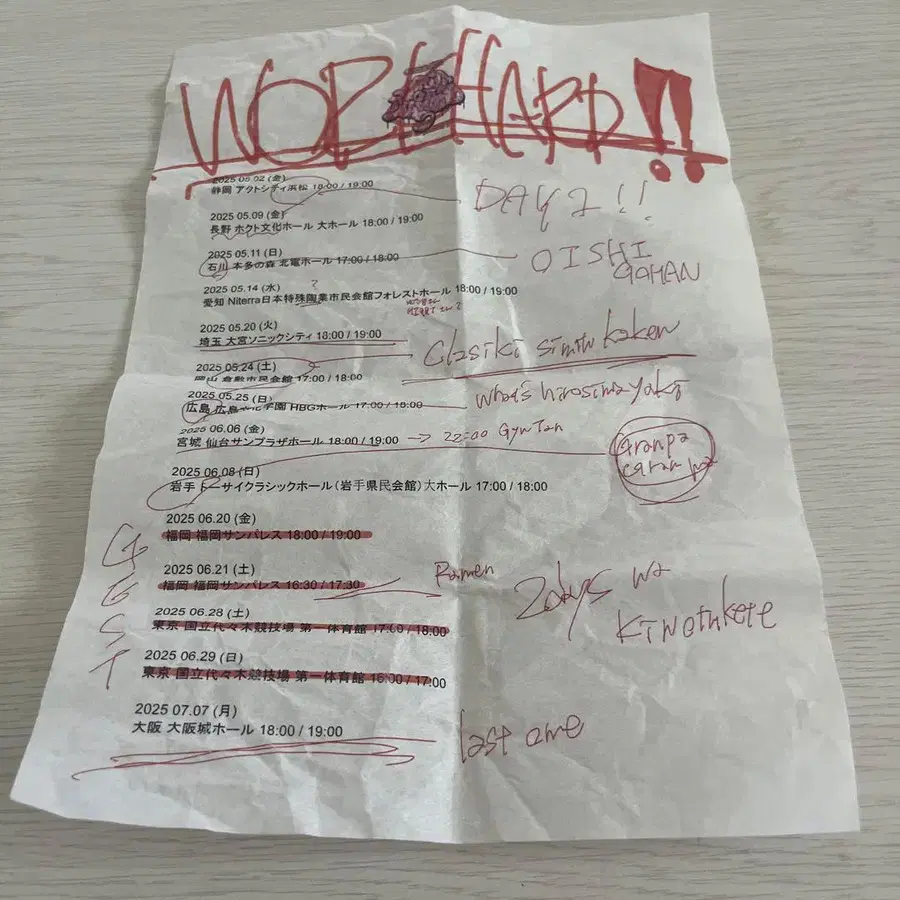 WORK HARD!!
2025 05.02 (金)
静岡 アクトシティ浜松 18:00 / 19:00
DAY 2!!
2025 05.09 (金)
長野 ホクト文化ホール 大ホール 18:00 / 19:00
2025 05.11 (日)
石川 本多の森 北電ホール 17:00 / 18:00
OISHI
GOHAN
2025 05.14 (水)
愛知 Niterra日本特殊陶業市民会館フォレストホール 18:00 / 19:00
2025 05.20 (火)
埼玉 大宮ソニックシティ 18:00 / 19:00
2025 05.24 (土)
岡山 倉敷市民会館 17:00 / 18:00
2025 05.25 (日)
広島 広島 学園 HBGホール 17:00 / 18:00
whats hirosimayaki
2025 06.06 (金)
宮城 仙台サンプラザホール 18:00 / 19:00 → 22:00 Gyu Tan
2025 06.08 (日)
岩手 トーサイクラシックホール（岩手県民会館）大ホール 17:00 / 18:00
2025 06.20 (金)
福岡 福岡サンパレス 18:00 / 19:00
2025 06.21 (土)
福岡 福岡サンパレス 16:30 / 17:30
Ramen
2days wa
Kiwotukete
2025 06.28 (土)
東京 国立代々木競技場 第一体育館 17:00 / 18:00
2025 06.29 (日)
東京 国立代々木競技場 第一体育館 16:00 / 17:00
2025 07.07 (月)
大阪 大阪城ホール 18:00 / 19:00
last one